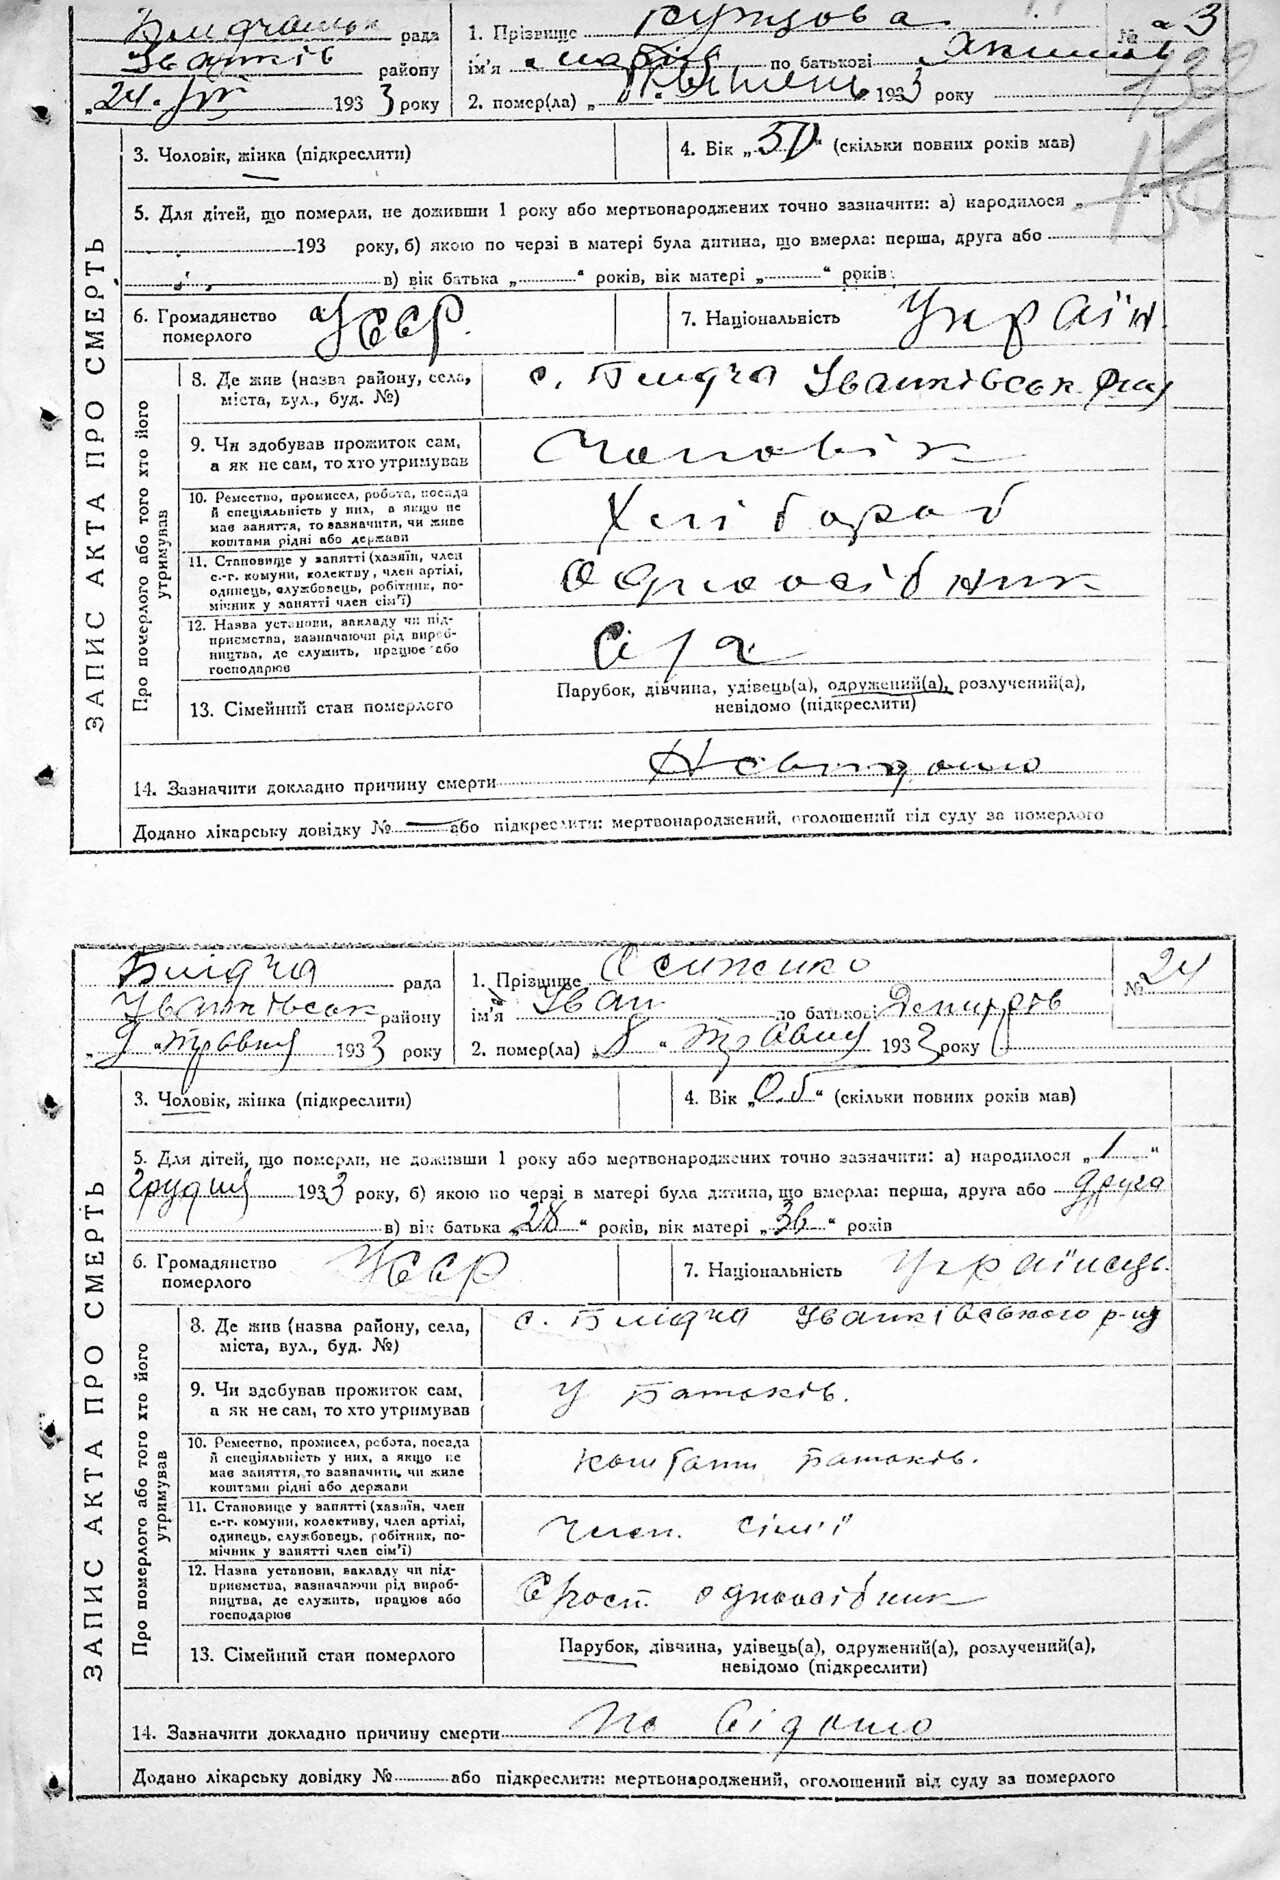 рада
Іванків району
„24. ІІІ 1933 року
1. Прізвище
ім'я по батькові
2. помер(ла) „ 1933 року
№ 3
132
3. Чоловік, жінка (підкреслити)
4. Вік „50“ (скільки повних років мав)
5. Для дітей, що померли, не доживши 1 року або мертвонароджених точно зазначити: а) народилося „ “
193 року, б) якою по черзі в матері була дитина, що вмерла: перша, друга або
в) вік батька „ “ років, вік матері „ “ років
6. Громадянство померлого УССР
7. Національність Україн
ЗАПИС АКТА ПРО СМЕРТЬ
Про померлого або того хто його утримував
8. Де жив (назва району, села, міста, вул., буд. №)
с. Блидча Іванківськ р-ну
9. Чи здобував прожиток сам, а як не сам, то хто утримував
Чоловік
10. Ремество, промисел, робота, посада й спеціяльність у них, а якщо не має заняття, то зазначити, чи живе коштами рідні або держави
Хлібороб
11. Становище у занятті (хазяїн, член с.-г. комуни, колективу, член артілі, одинець, службовець, робітник, помічник у занятті член сім'ї)
Одноосібник
12. Назва установи, закладу чи підприємства, зазначаючи рід виробництва, де служить, працює або господарює
С/г
13. Сімейний стан померлого
Парубок, дівчина, удівець(а), одружений(а), розлучений(а),
невідомо (підкреслити)
14. Зазначити докладно причину смерти Невидомо
Додано лікарську довідку № — або підкреслити: мертвонароджений, оголошений від суду за померлого
Блідча рада
Іванківськ району
„9 “Травня 1933 року
1. Прізвище Осипенко
ім'я Іван по батькові Дмитрів
2. помер(ла) „8“ Травня 1933 року
№ 24
3. Чоловік, жінка (підкреслити)
4. Вік „0.5“ (скільки повних років мав)
5. Для дітей, що померли, не доживши 1 року або мертвонароджених точно зазначити: а) народилося „1“
Грудня 1933 року, б) якою по черзі в матері була дитина, що вмерла: перша, друга або друга
в) вік батька „28“ років, вік матері „36“ років
6. Громадянство померлого УССР
7. Національність Українець
ЗАПИС АКТА ПРО СМЕРТЬ
Про померлого або того хто його утримував
8. Де жив (назва району, села, міста, вул., буд. №)
с. Блідча Іванківського р-ну
9. Чи здобував прожиток сам, а як не сам, то хто утримував
У Батьків.
10. Ремество, промисел, робота, посада й спеціяльність у них, а якщо не має заняття, то зазначити, чи живе коштами рідні або держави
Коштами батьків.
11. Становище у занятті (хазяїн, член с.-г. комуни, колективу, член артілі, одинець, службовець, робітник, помічник у занятті член сім'ї)
Член. Сімї
12. Назва установи, закладу чи підприємства, зазначаючи рід виробництва, де служить, працює або господарює
одноосібник
13. Сімейний стан померлого
Парубок, дівчина, удівець(а), одружений(а), розлучений(а),
невідомо (підкреслити)
14. Зазначити докладно причину смерти Не відомо
Додано лікарську довідку № або підкреслити: мертвонароджений, оголошений від суду за померлого